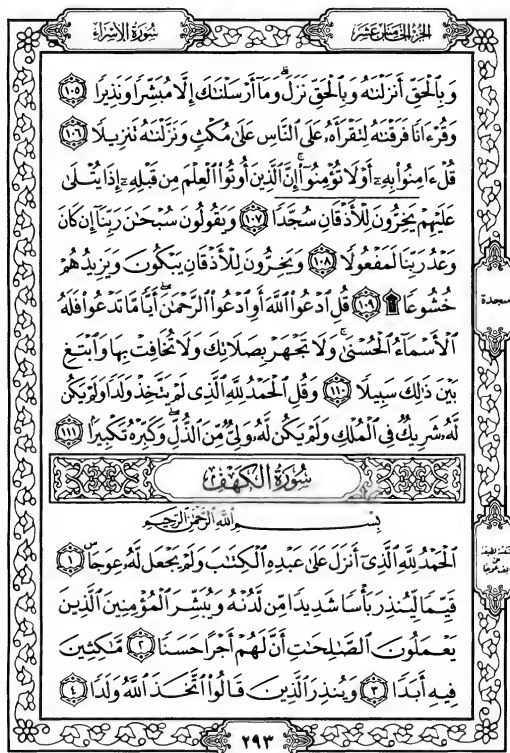 سُورَةُ الإِسْرَاءِ
الجُزْءُ الخَامِسَ عَشَرَ
وَبِٱلْحَقِّ أَنزَلْنَٰهُ وَبِٱلْحَقِّ نَزَلَ ۗ وَمَآ أَرْسَلْنَٰكَ إِلَّا مُبَشِّرًا وَنَذِيرًا ١٠٥
وَقُرْءَانًا فَرَقْنَٰهُ لِتَقْرَأَهُۥ عَلَى ٱلنَّاسِ عَلَىٰ مُكْثٍ وَنَزَّلْنَٰهُ تَنزِيلًا ١٠٦
قُلْ ءَامِنُوا۟ بِهِۦٓ أَوْ لَا تُؤْمِنُوٓا۟ ۚ إِنَّ ٱلَّذِينَ أُوتُوا۟ ٱلْعِلْمَ مِن قَبْلِهِۦٓ إِذَا يُتْلَىٰ
عَلَيْهِمْ يَخِرُّونَ لِلْأَذْقَانِ سُجَّدًا ١٠٧ وَيَقُولُونَ سُبْحَٰنَ رَبِّنَآ إِن كَانَ
وَعْدُ رَبِّنَا لَمَفْعُولًا ١٠٨ وَيَخِرُّونَ لِلْأَذْقَانِ يَبْكُونَ وَيَزِيدُهُمْ
خُشُوعًا ۩ ١٠٩ قُلِ ٱدْعُوا۟ ٱللَّهَ أَوِ ٱدْعُوا۟ ٱلرَّحْمَٰنَ ۖ أَيًّا مَّا تَدْعُوا۟ فَلَهُ
ٱلْأَسْمَآءُ ٱلْحُسْنَىٰ ۚ وَلَا تَجْهَرْ بِصَلَاتِكَ وَلَا تُخَافِتْ بِهَا وَٱبْتَغِ
بَيْنَ ذَٰلِكَ سَبِيلًا ١١٠ وَقُلِ ٱلْحَمْدُ لِلَّهِ ٱلَّذِى لَمْ يَتَّخِذْ وَلَدًا وَلَمْ يَكُن
لَّهُۥ شَرِيكٌ فِى ٱلْمُلْكِ وَلَمْ يَكُن لَّهُۥ وَلِىٌّ مِّنَ ٱلذُّلِّ ۖ وَكَبِّرْهُ تَكْبِيرًۢا ١١١
سُورَةُ الكَهْفِ
بِسْمِ ٱللَّهِ ٱلرَّحْمَٰنِ ٱلرَّحِيمِ
ٱلْحَمْدُ لِلَّهِ ٱلَّذِىٓ أَنزَلَ عَلَىٰ عَبْدِهِ ٱلْكِتَٰبَ وَلَمْ يَجْعَل لَّهُۥ عِوَجَا ۜ ١
قَيِّمًا لِّيُنذِرَ بَأْسًا شَدِيدًا مِّن لَّدُنْهُ وَيُبَشِّرَ ٱلْمُؤْمِنِينَ ٱلَّذِينَ
يَعْمَلُونَ ٱلصَّٰلِحَٰتِ أَنَّ لَهُمْ أَجْرًا حَسَنًا ٢ مَّٰكِثِينَ
فِيهِ أَبَدًا ٣ وَيُنذِرَ ٱلَّذِينَ قَالُوا۟ ٱتَّخَذَ ٱللَّهُ وَلَدًا ٤
سجدة
٢٩٣